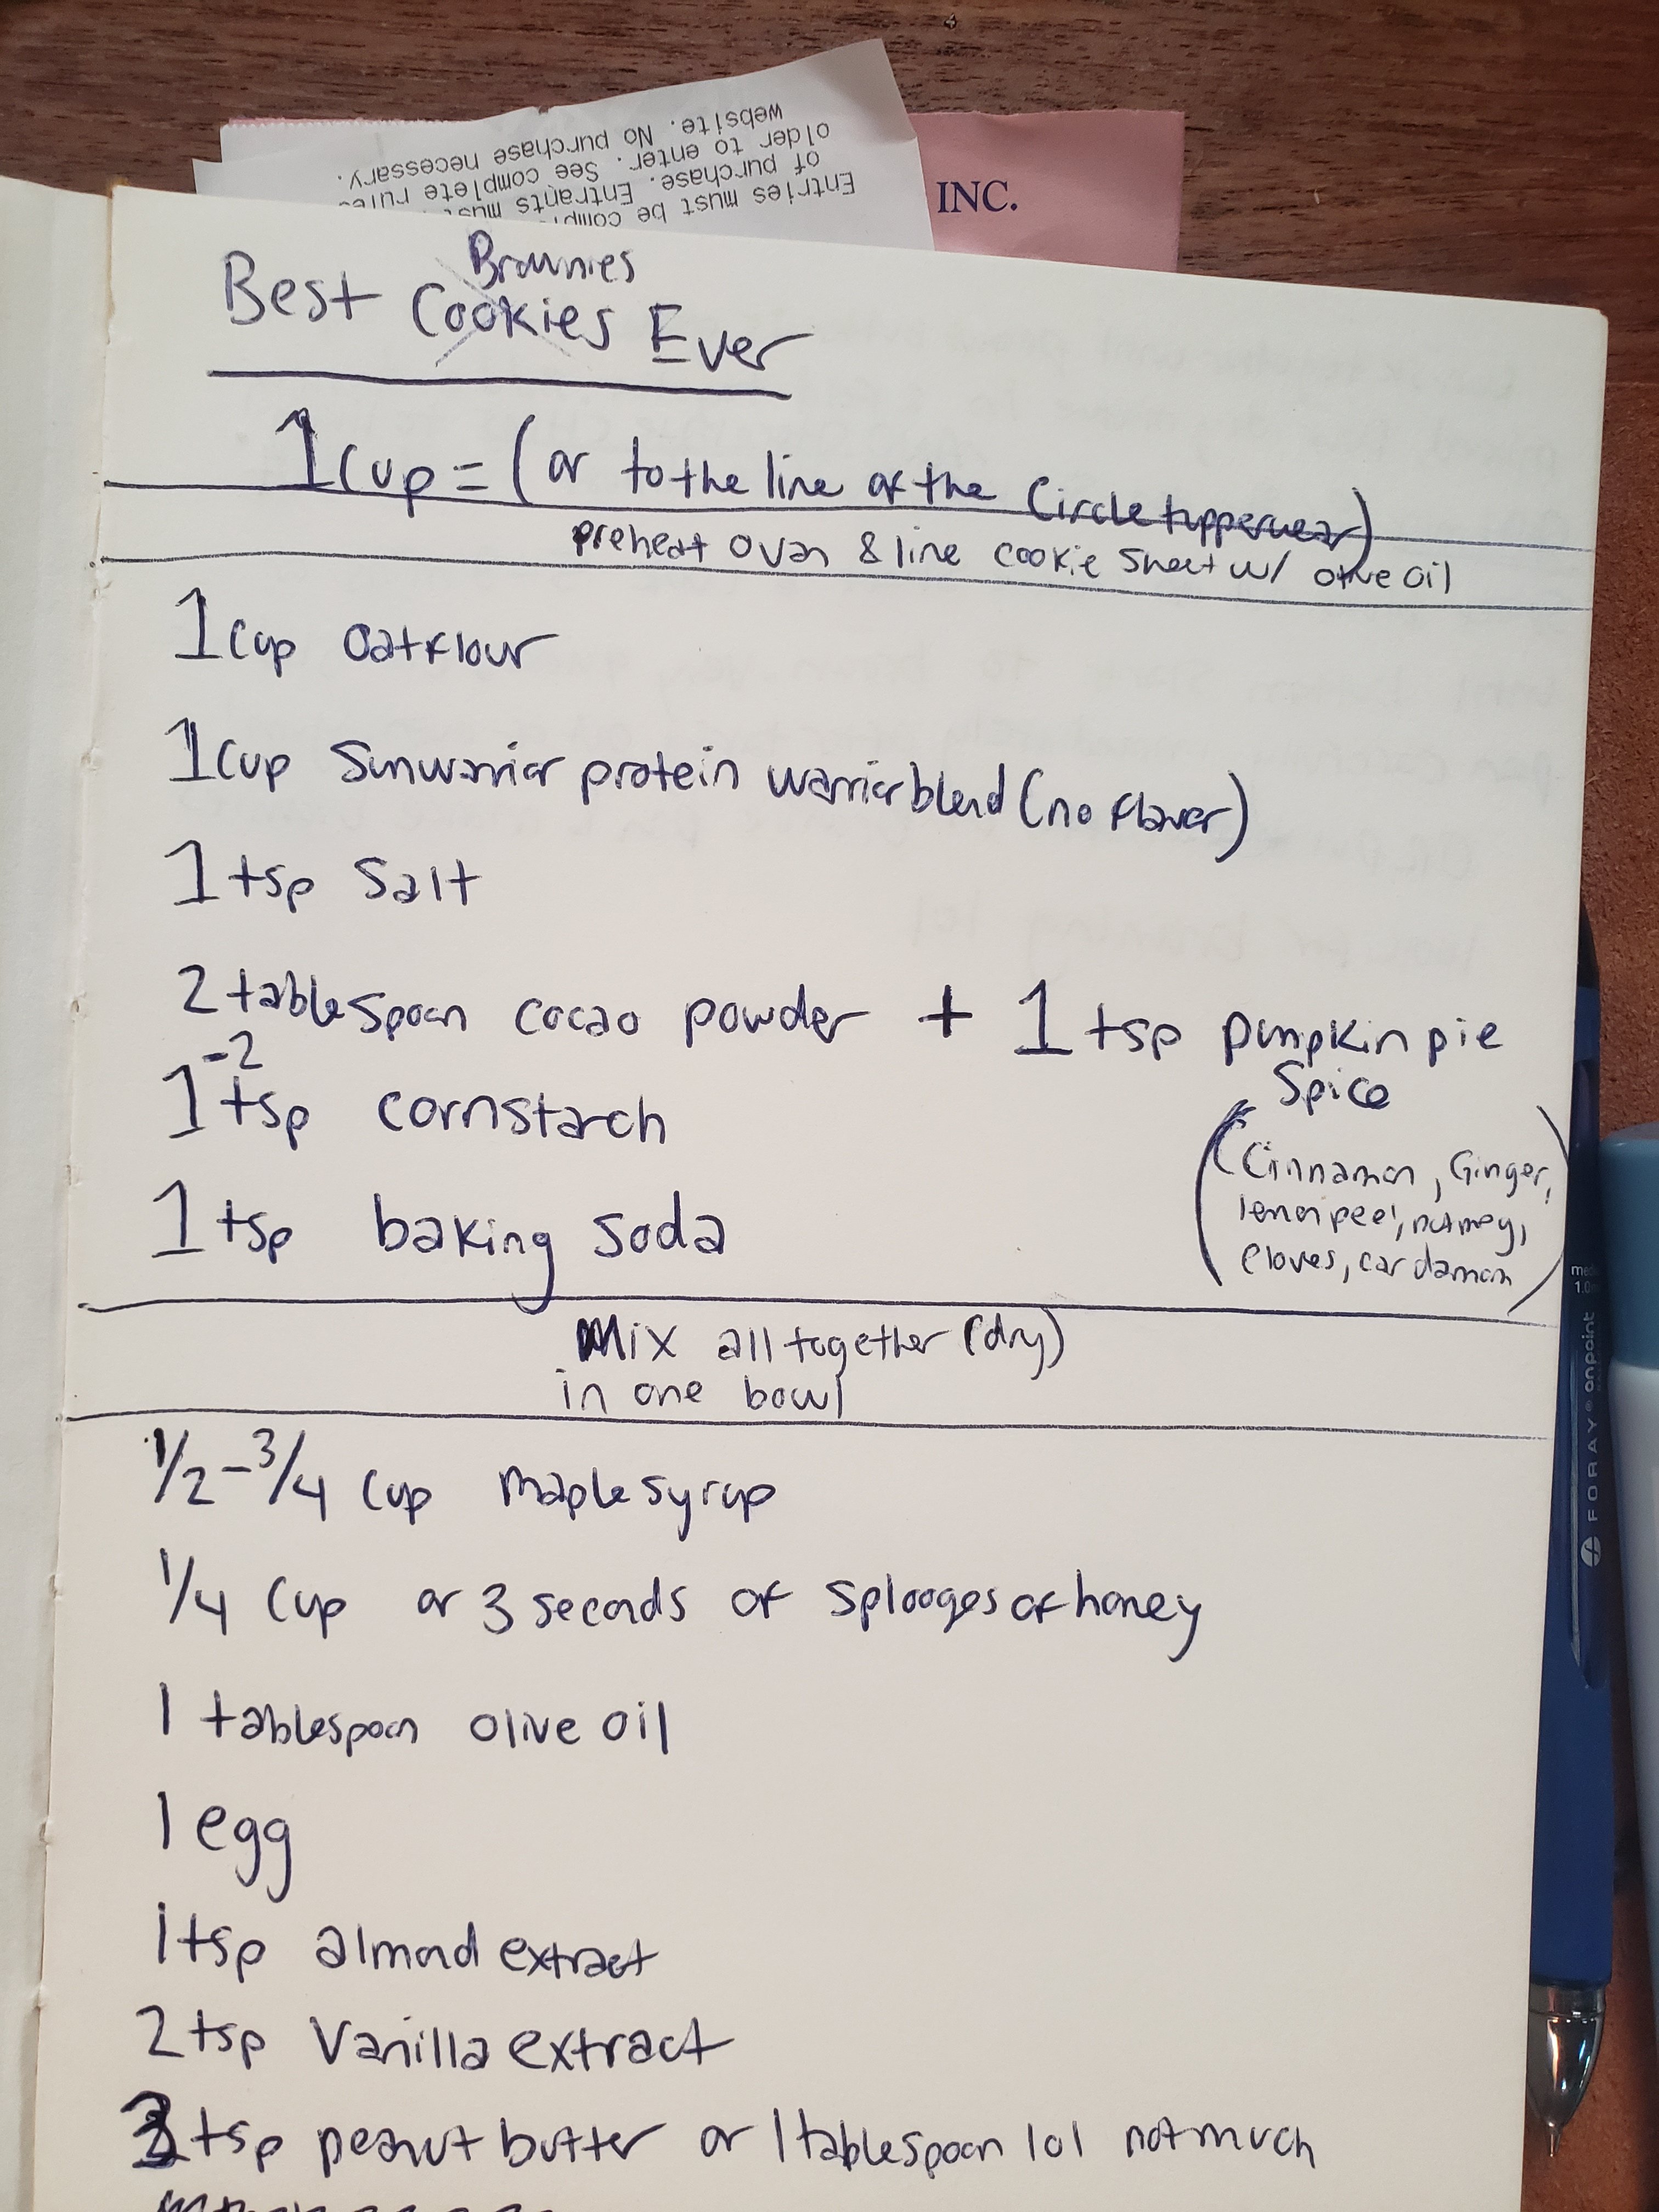 Entries must be comp
of purchase. Entrants must
older to enter. See complete rules
website. No purchase necessary.
INC.
Brownies
Best Cookies Ever
1 Cup = (or to the line of the Circle tupperwear)
preheat oven & line cookie sheet w/ olive oil
1 Cup Oatflour
1 Cup Sunwarrior protein warrior blend (no flavor)
1 tsp Salt
2 tablespoon cacao powder + 1 tsp pumpkin pie
Spice
(Cinnamon, Ginger,
lemon peel, nutmeg,
cloves, cardamom)
1-2 tsp cornstarch
1 tsp baking soda
Mix all together (dry)
in one bowl
1/2 - 3/4 Cup Maple syrup
1/4 Cup or 3 seconds of splooges of honey
1 tablespoon olive oil
1 egg
1 tsp almond extract
2 tsp Vanilla extract
3 tsp peanut butter or 1 tablespoon lol not much
FORAY onpoint
1.0